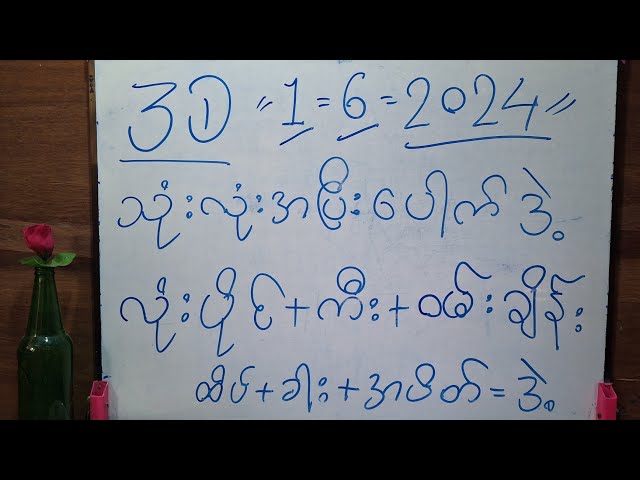 3D "1=6=2024"
သုံးလုံးအပြီးပေါက်ဒဲ့
လုံးပိုင်+ကီး+ဝမ်းချိန်း
ထိပ်+ခါး+အပိတ်=ဒဲ့